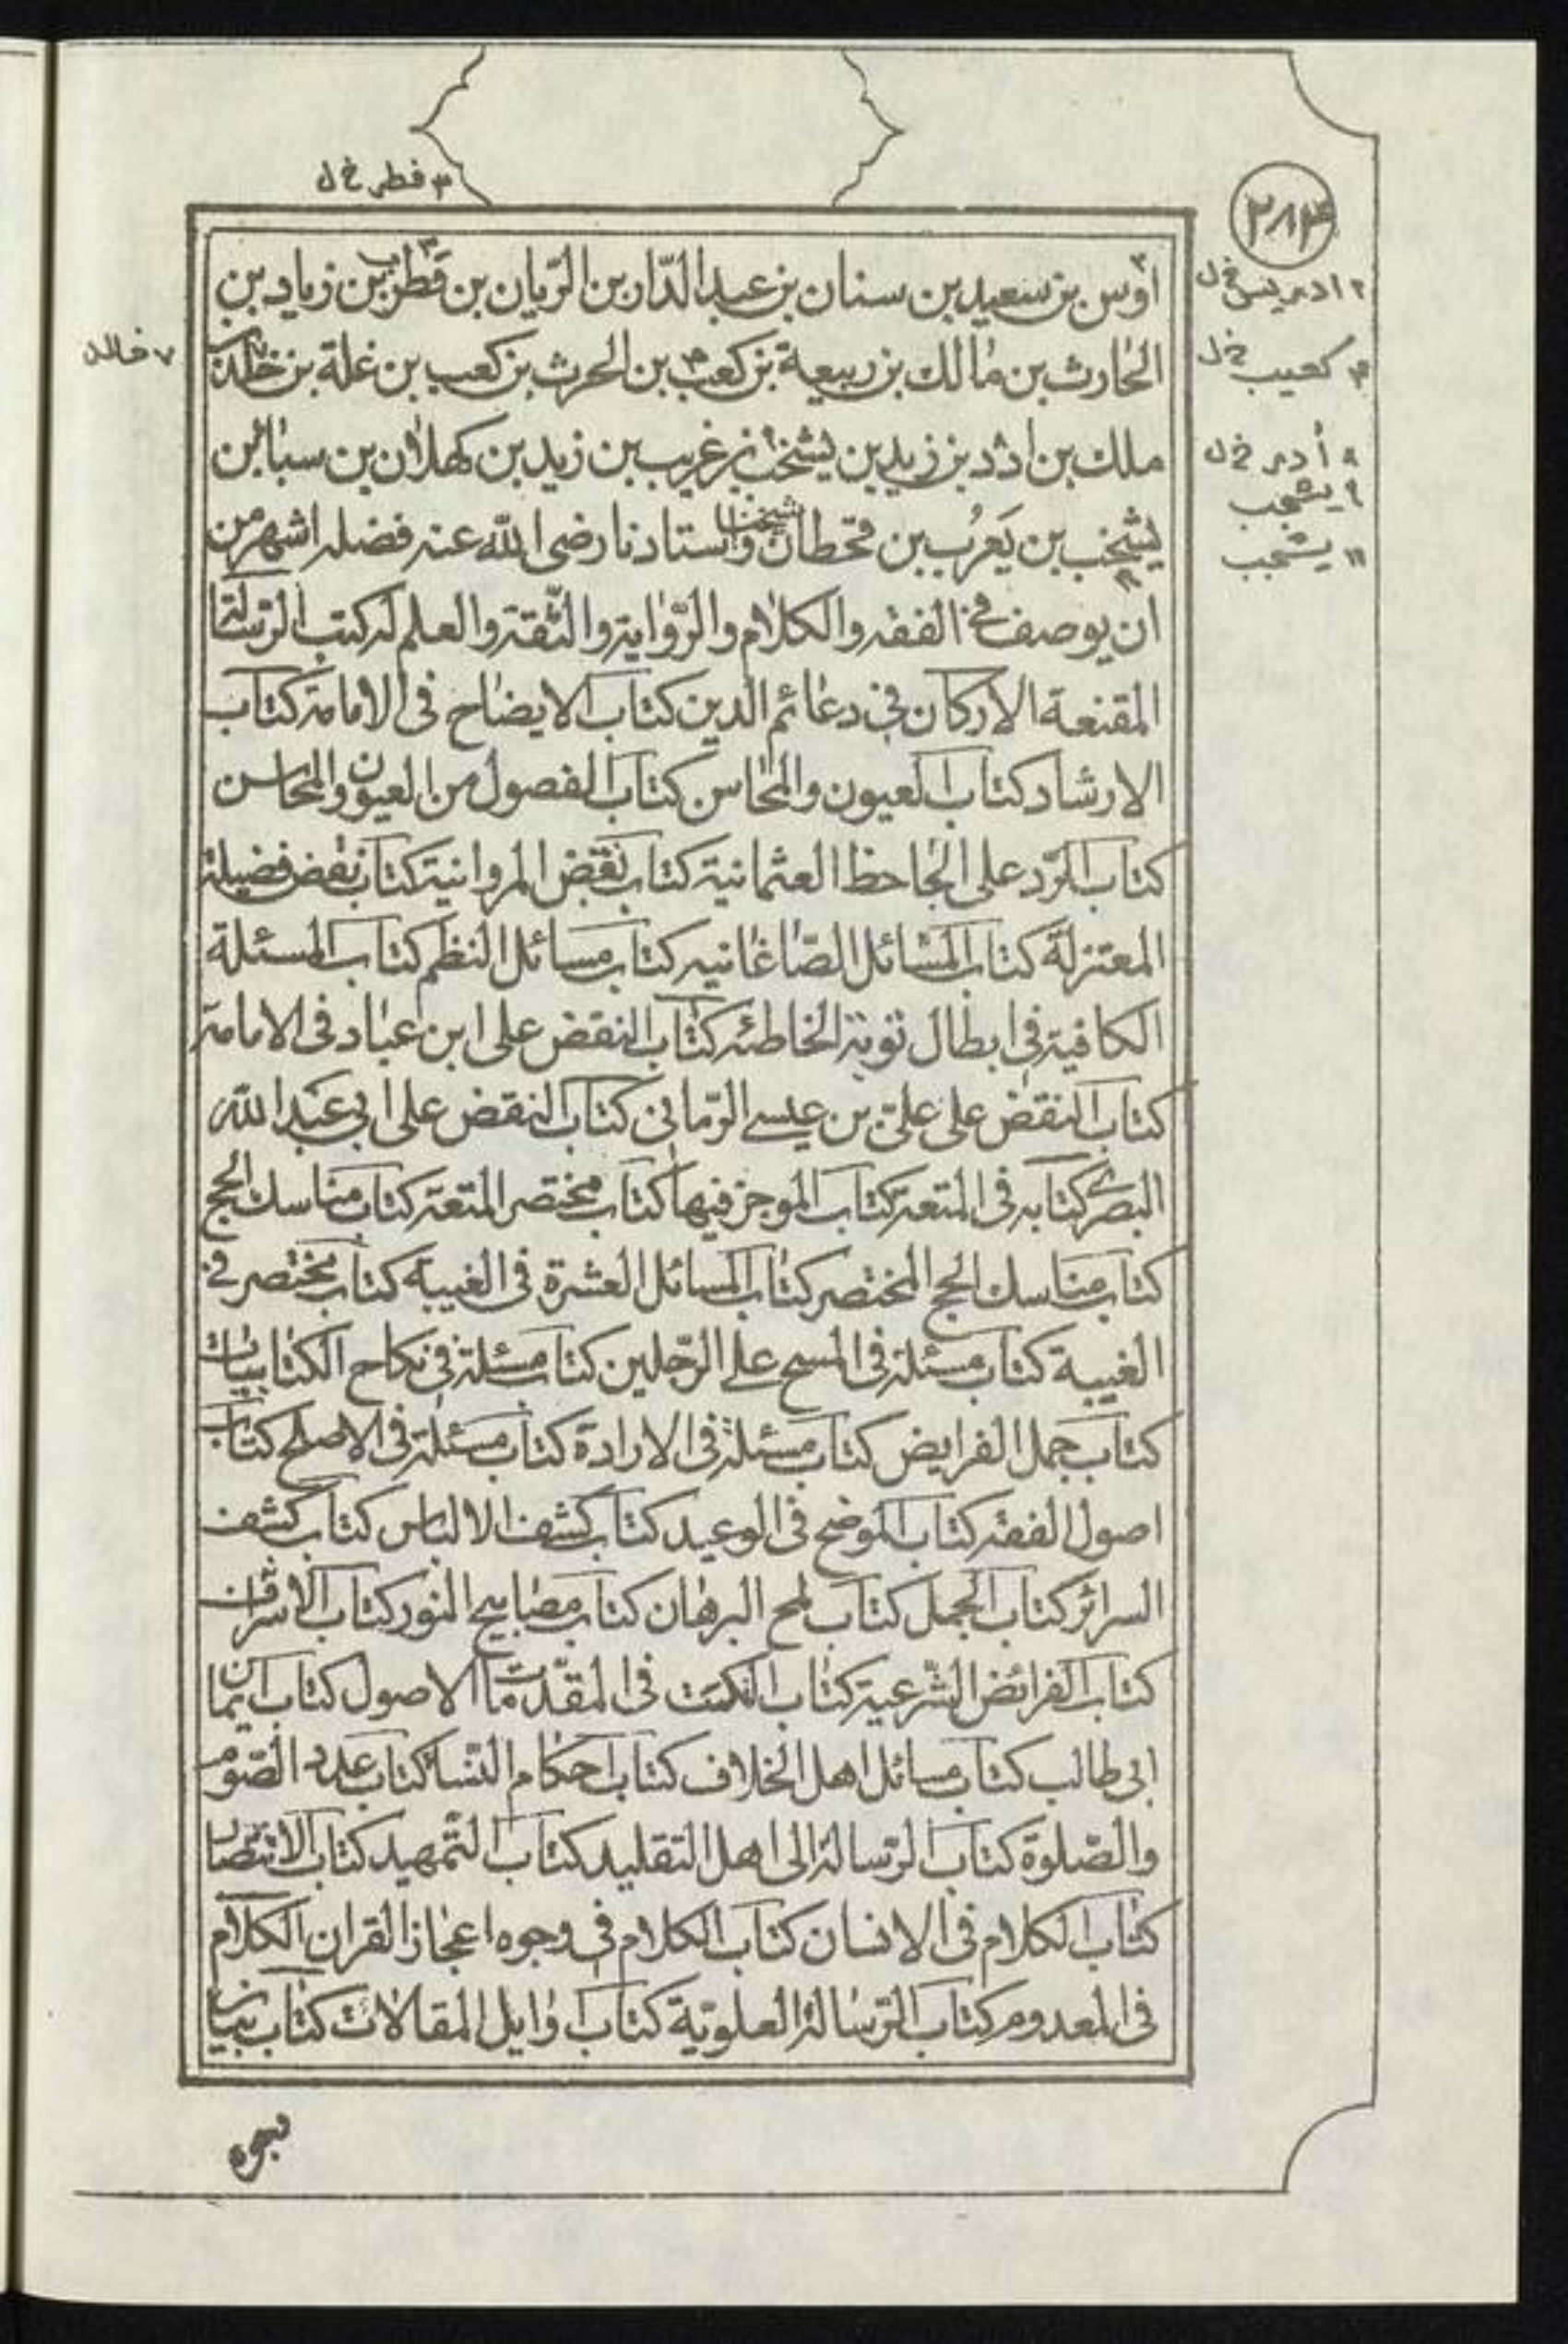 ٣ فطر خ ل
٢٨٤
اوس بن سعيد بن سنان بن عبد الدّار بن الرّيان بن قطر بن زياد بن
٢ ادريس خ ل
الحارث بن مالك بن ربيعة بن كعب بن الحرث بن كعب بن غلة بن خلد بن
٤ كعيب خ ل
٧ خالد
ملك بن ادد بن زيد بن يشخب بن غريب بن زيد بن كهلان بن سبا بن
٨ أدر خ ل
٩ يشجب
يشخب بن يعرُب بن قحطان وشيخنا واستادنا رضى الله عنه فضله اشهر من
١١ يشجب
ان يوصف فى الفقه والكلام والرّواية والثّقة والعلم له كتب الرسالة
المقنعة الاركان فى دعائم الدين كتاب الايضاح فى الامامة كتاب
الارشاد كتاب العيون والمحاسن كتاب الفصول من العيون والمحاسن
كتاب الرّد على الجاحظ العثمانية كتاب نقض المروانية كتاب نقض فضيلة
المعتزلة كتاب المسائل الصّاغانيه كتاب مسائل النظم كتاب المسئلة
الكافية فى ابطال توبة الخاطئه كتاب النقض على ابن عباد فى الامامة
كتاب النقض على علىّ بن عيسى الرّمانى كتاب النقض على ابى عبد الله
البصرى كتابه فى المتعة كتاب الموجز فيها كتاب مختصر المتعة كتاب مناسك الحج
كتاب مناسك الحج المختصر كتاب المسائل العشرة فى الغيبة كتاب مختصر فى
الغيبة كتاب مسئلة فى المسح على الرّجلين كتاب مسئلة فى نكاح الكتابيات
كتاب جمل الفرايض كتاب مسئلة فى الارادة كتاب مسئلة فى الاصلح كتاب
اصول الفقه كتاب الموضح فى الوعيد كتاب كشف الالباس كتاب كشف
السرائر كتاب الجمل كتاب لمح البرهان كتاب مصابيح النور كتاب الاشراف
كتاب الفرائض الشّرعية كتاب النكت فى المقدّمات الاصول كتاب ايمان
ابى طالب كتاب مسائل اهل الخلاف كتاب احكام النّساء كتاب عدد الصّوم
والصّلوة كتاب الرّسالة الى اهل التقليد كتاب التّمهيد كتاب الانتصار
كتاب الكلام فى الانسان كتاب الكلام فى وجوه اعجاز القران الكلام
فى المعدوم كتاب الرّسالة العلويّة كتاب اوايل المقالات كتاب بيان